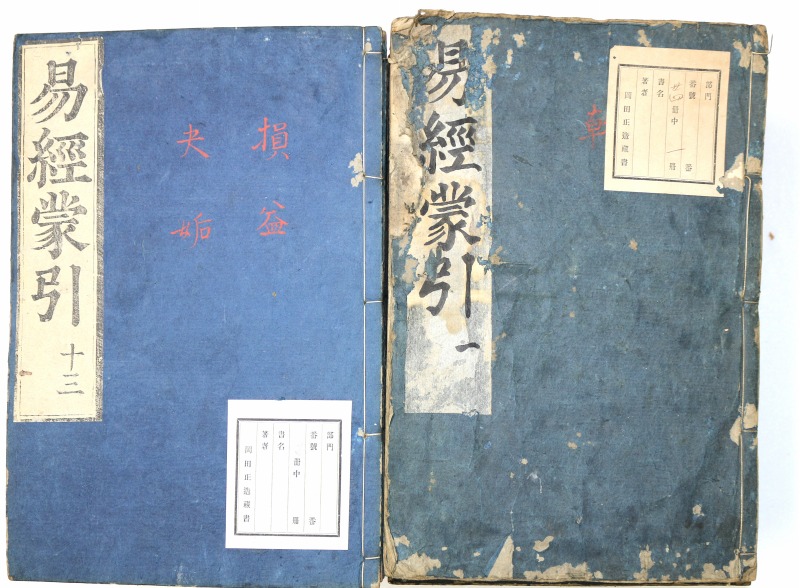 易經蒙引
十三
損 益
夬 姤
部門
番號 番
冊中 冊
書名
著者
岡田正造藏書
易經蒙引
一
乾
部門
番號 番
廿四冊中 一冊
書名
著者
岡田正造藏書